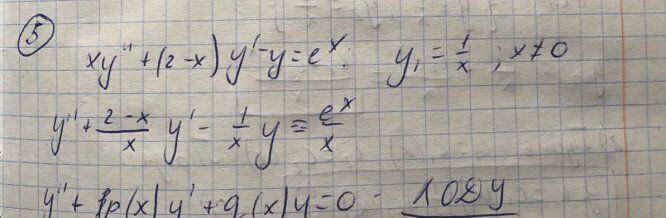 5
xy" + (2-x) y' - y = e^x; y₁ = 1/x ; x ≠ 0
y" + (2-x)/x y' - 1/x y = e^x/x
y" + p(x) y' + q(x) y = 0 - ЛОДУ